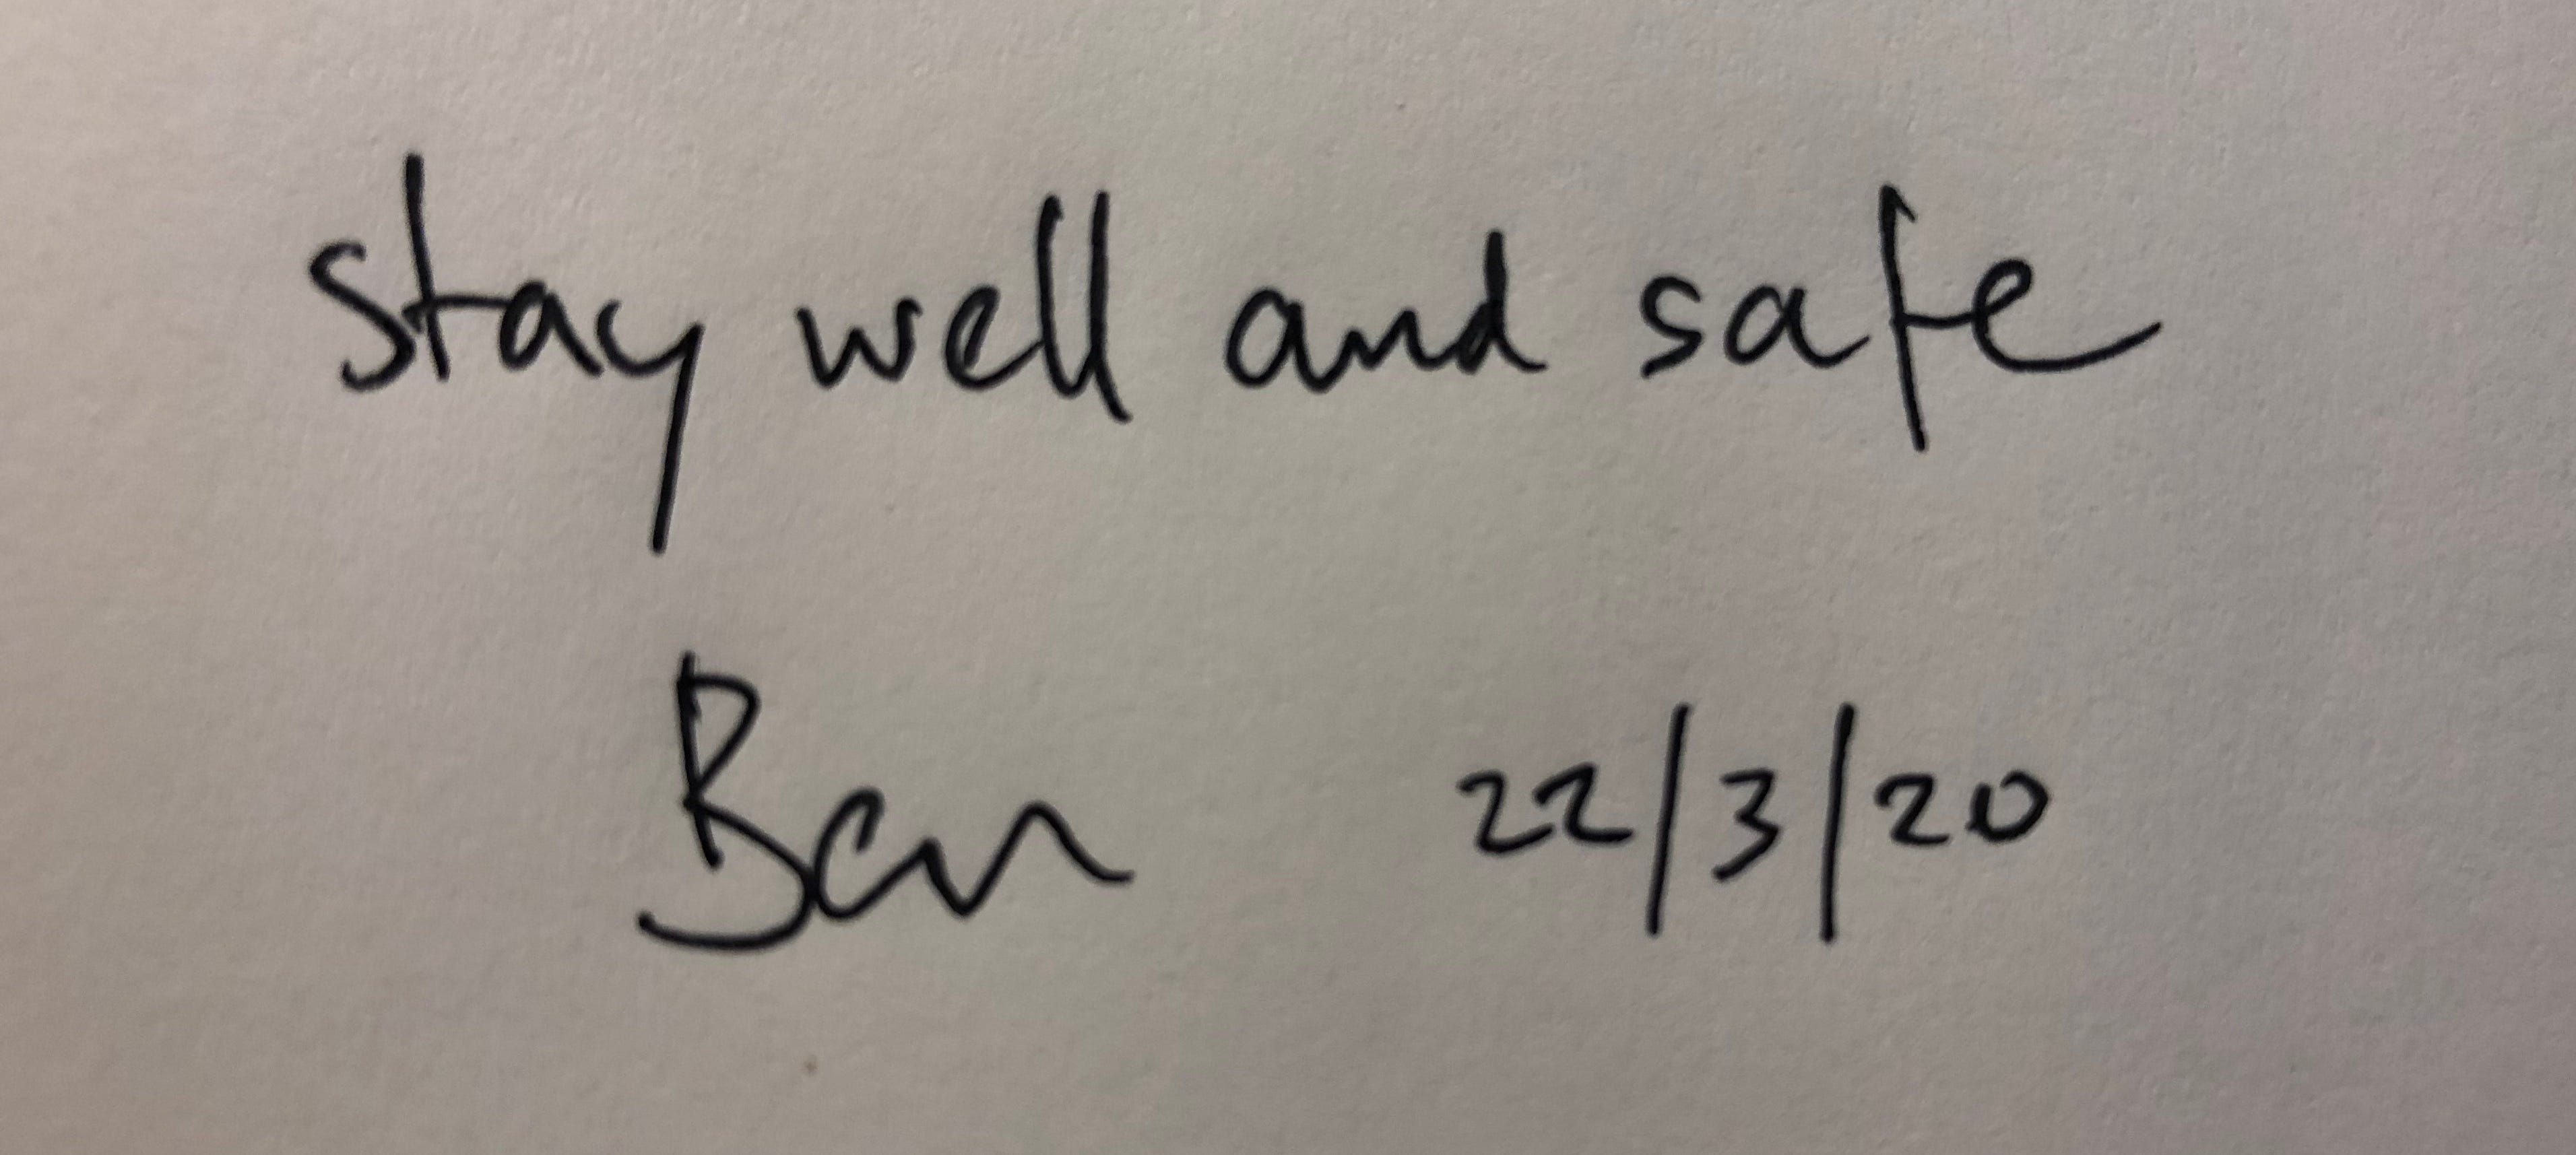 stay well and safe
Ben 22/3/20